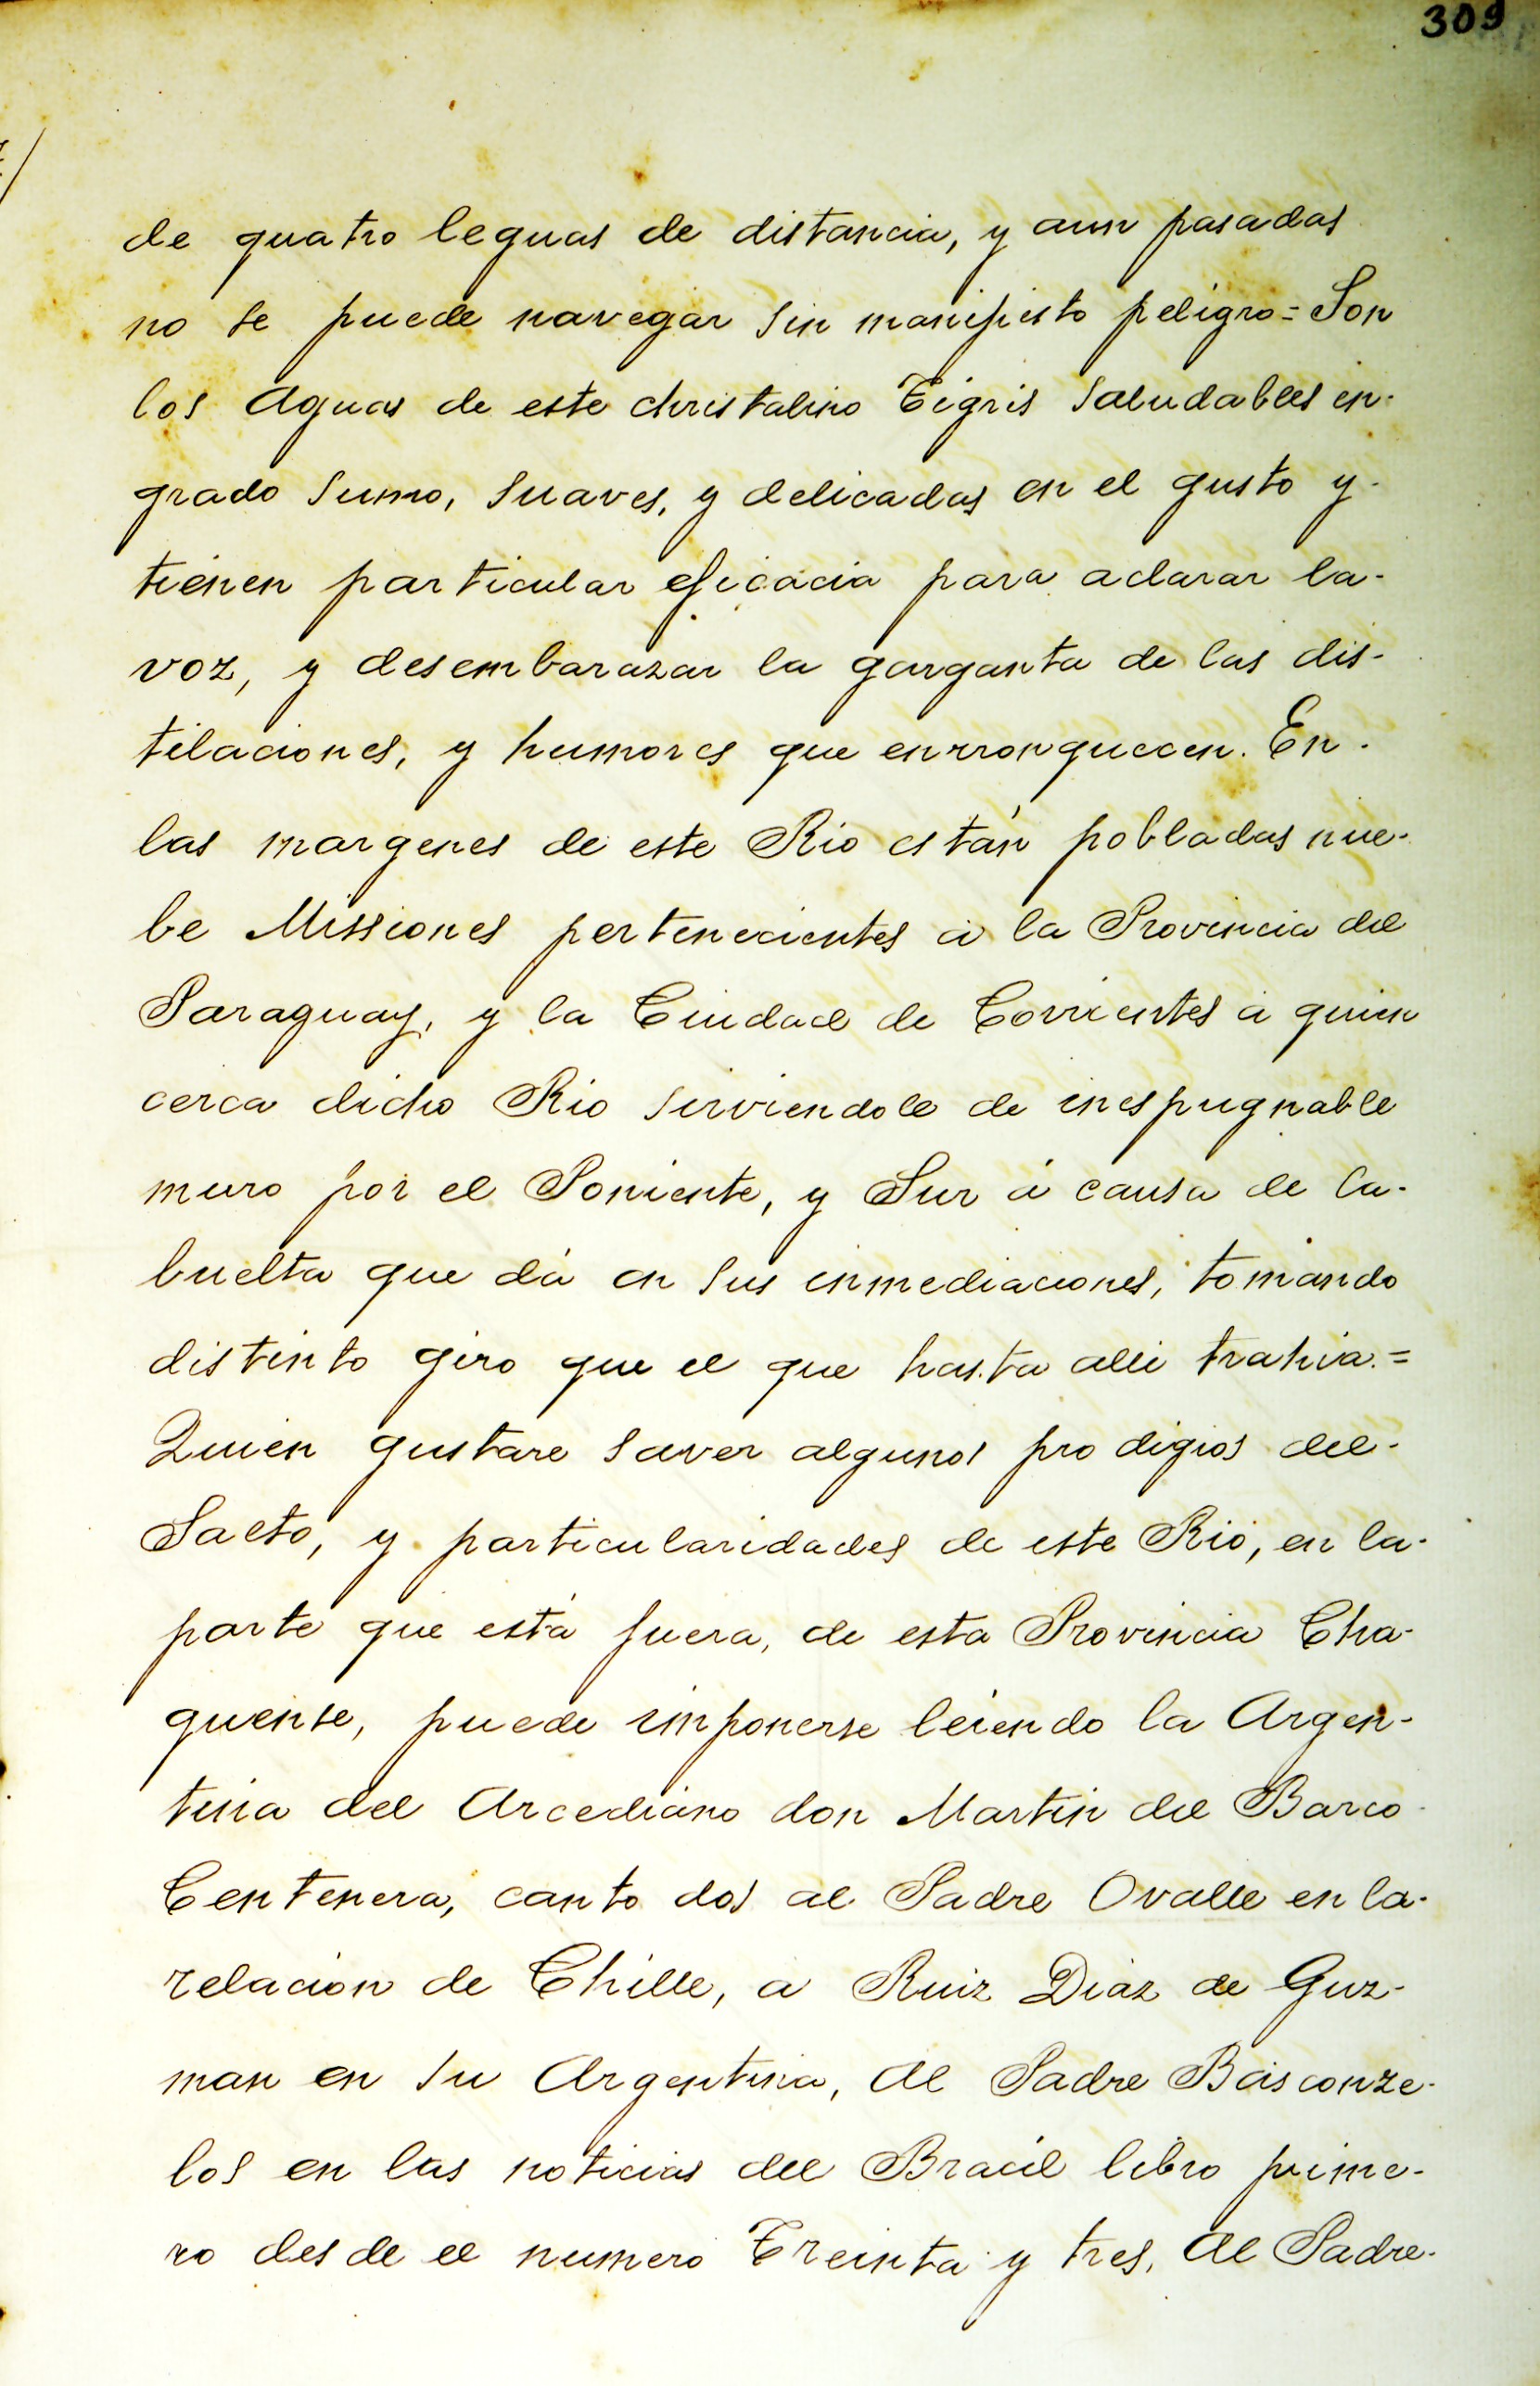 309
de quatro leguas de distancia, y aun pasadas
no se puede navegar sin manifiesto peligro = Son
los Aguas de este christalino Tigris saludables en-
grado sumo, suaves, y delicadas en el gusto y-
tienen particular eficacia para aclarar la-
voz, y desembarazar la garganta de las dis-
tilaciones, y humores que enrronquecen. En-
las margenes de este Rio están pobladas nue-
be Missiones pertenecientes á la Provincia del
Paraguay, y la Ciudad de Corrientes á quien
cerca dicho Rio sirviendole de inespugnable
muro por el Poniente, y Sur á causa de la-
buelta que dá en sus inmediaciones, tomando
distinto giro que el que hasta alli trahia. =
Quien gustare saver algunos prodigios del-
Salto, y particularidades de este Rio, en la-
parte que está fuera, de esta Provincia Cha-
quense, puede imponerse leiendo la Argen-
tina del Arcediano don Martin del Barco
Centenera, canto dos al Padre Ovalle en la-
relacion de Chille, a Ruiz Diaz de Guz-
man en su Argentina, Al Padre Basconze-
los en las noticias del Bracil libro prime-
ro desde el numero Treinta y tres, Al Padre-